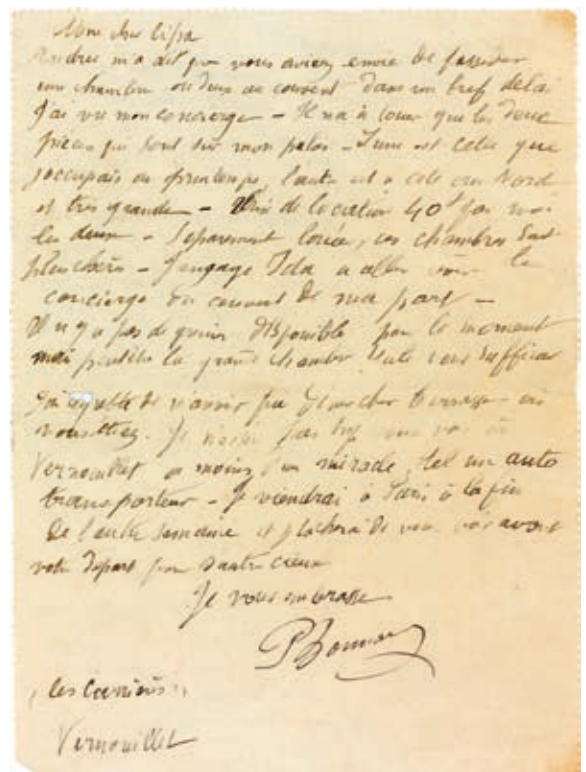 Mon cher Cipa
m'a dit que vous aviez envie de posséder
une chambre ou deux au couvent dans un bref délai
J'ai vu mon concierge - Il n'a à louer que les deux
pièces qui sont sur mon palier - L'une est celle que
j'occupais au printemps, l'autre est à côté au Nord
et très grande - Prix de location 40f par mois
les deux - Séparément louées, ces chambres sont
plus chères - J'engage Ida à aller voir le
concierge du couvent de ma part -
Il n'y a pas de grenier disponible pour le moment
mais peut être la grande chambre seule vous suffira
J'ai regretté de n'avoir pu
vous étiez. Je pas trop vous voir à
Vernouillet à moins d'un miracle, tel un auto
transporteur - Je viendrai à Paris à la fin
de l'autre semaine et je tâcherai de vous voir avant
votre départ pour d'autres cieux
Je vous embrasse
PBonnard
Vernouillet